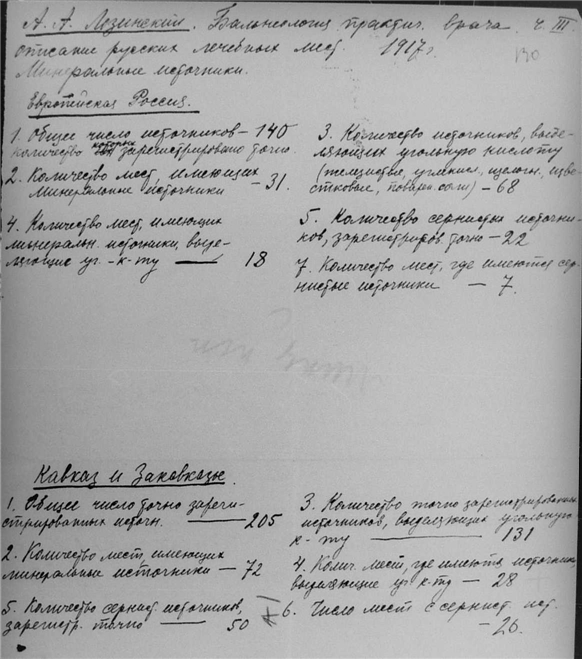 А. А. Лозинский. Бальнеология практич. врача ч. III.
описание русских лечебных мест. 1917 г.
130
Минеральные источники.
Европейская Россия.
1. Общее число источников – 140
количество которых зарегистрировано точно.
2. Количество мест, имеющих
минеральные источники – 31.
4. Количество мест, имеющих
минеральн. источники, выде-
ляющие уг. - к-ту — 18
3. Количество источников, выде-
ляющих угольную кислоту
(железистые, углекисл., щелочн., изве-
стковые, поварен. соли) – 68
5. Количество сернистых источни-
ков, зарегистриров. точно – 22
7. Количество мест, где имеются сер-
нистые источники – 7.
Кавказ и Закавказье.
1. Общее число точно зареги-
стрированных источн. — 205
2. Количество мест, имеющих
минеральные источники – 72
5. Количество сернист. источников,
зарегистр. точно — 50
3. Количество точно зарегистрированных
источников, выделяющих угольную
к-ту — 131
4. Колич. мест, где имеются источники
выделяющие уг. к-ту – 28
6. Число мест с сернист. ист.
– 26.